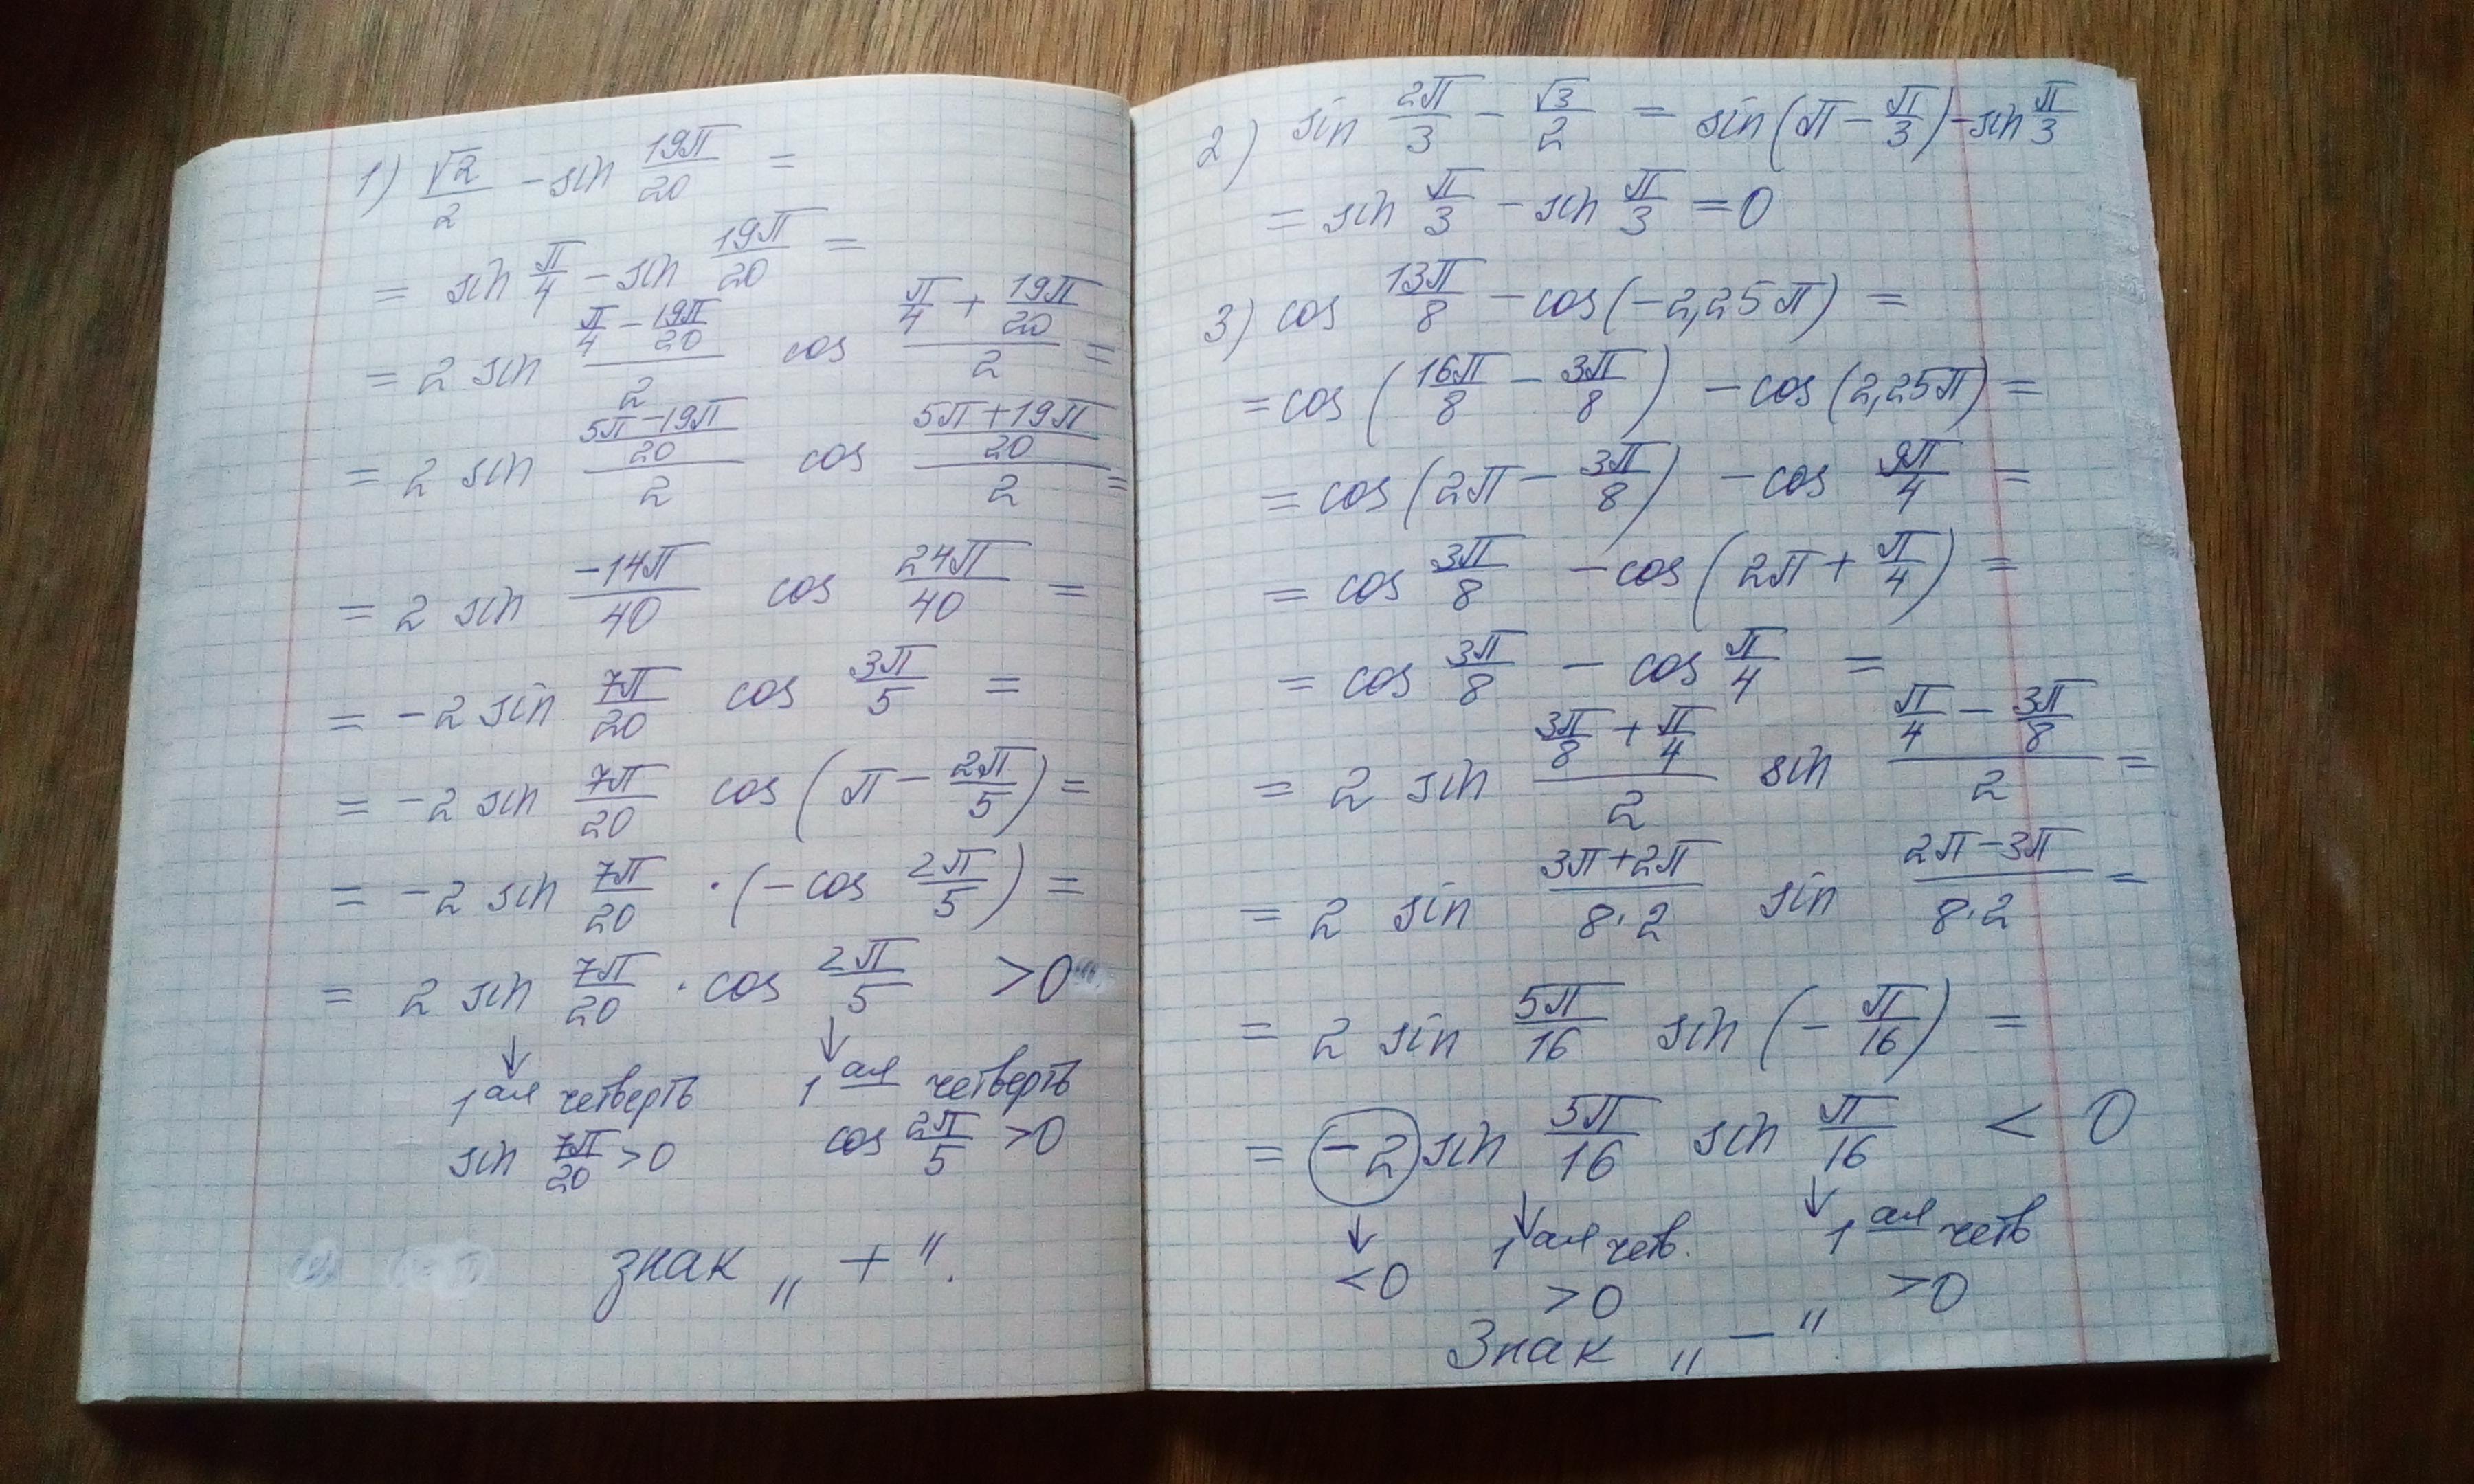 1) √2/2 - sin 19π/20 =
= sin π/4 - sin 19π/20 =
= 2 sin (π/4 - 19π/20)/2 cos (π/4 + 19π/20)/2 =
= 2 sin ((5π - 19π)/20)/2 cos ((5π + 19π)/20)/2 =
= 2 sin -14π/40 cos 24π/40 =
= -2 sin 7π/20 cos 3π/5 =
= -2 sin 7π/20 cos (π - 2π/5) =
= -2 sin 7π/20 · (-cos 2π/5) =
= 2 sin 7π/20 · cos 2π/5 > 0
↓ ↓
1ая четверть 1ая четверть
sin 7π/20 > 0 cos 2π/5 > 0
знак „ + “.
2) sin 2π/3 - √3/2 = sin(π - π/3) - sin π/3
= sin π/3 - sin π/3 = 0
3) cos 13π/8 - cos(-2,25π) =
= cos (16π/8 - 3π/8) - cos(2,25π) =
= cos (2π - 3π/8) - cos 9π/4 =
= cos 3π/8 - cos (2π + π/4) =
= cos 3π/8 - cos π/4 =
= 2 sin (3π/8 + π/4)/2 sin (π/4 - 3π/8)/2 =
= 2 sin (3π + 2π)/(8·2) sin (2π - 3π)/(8·2) =
= 2 sin 5π/16 sin (-π/16) =
= -2 sin 5π/16 sin π/16 < 0
↓ ↓ ↓
<0 1ая четв. 1ая четв
>0 >0
Знак „ — “.